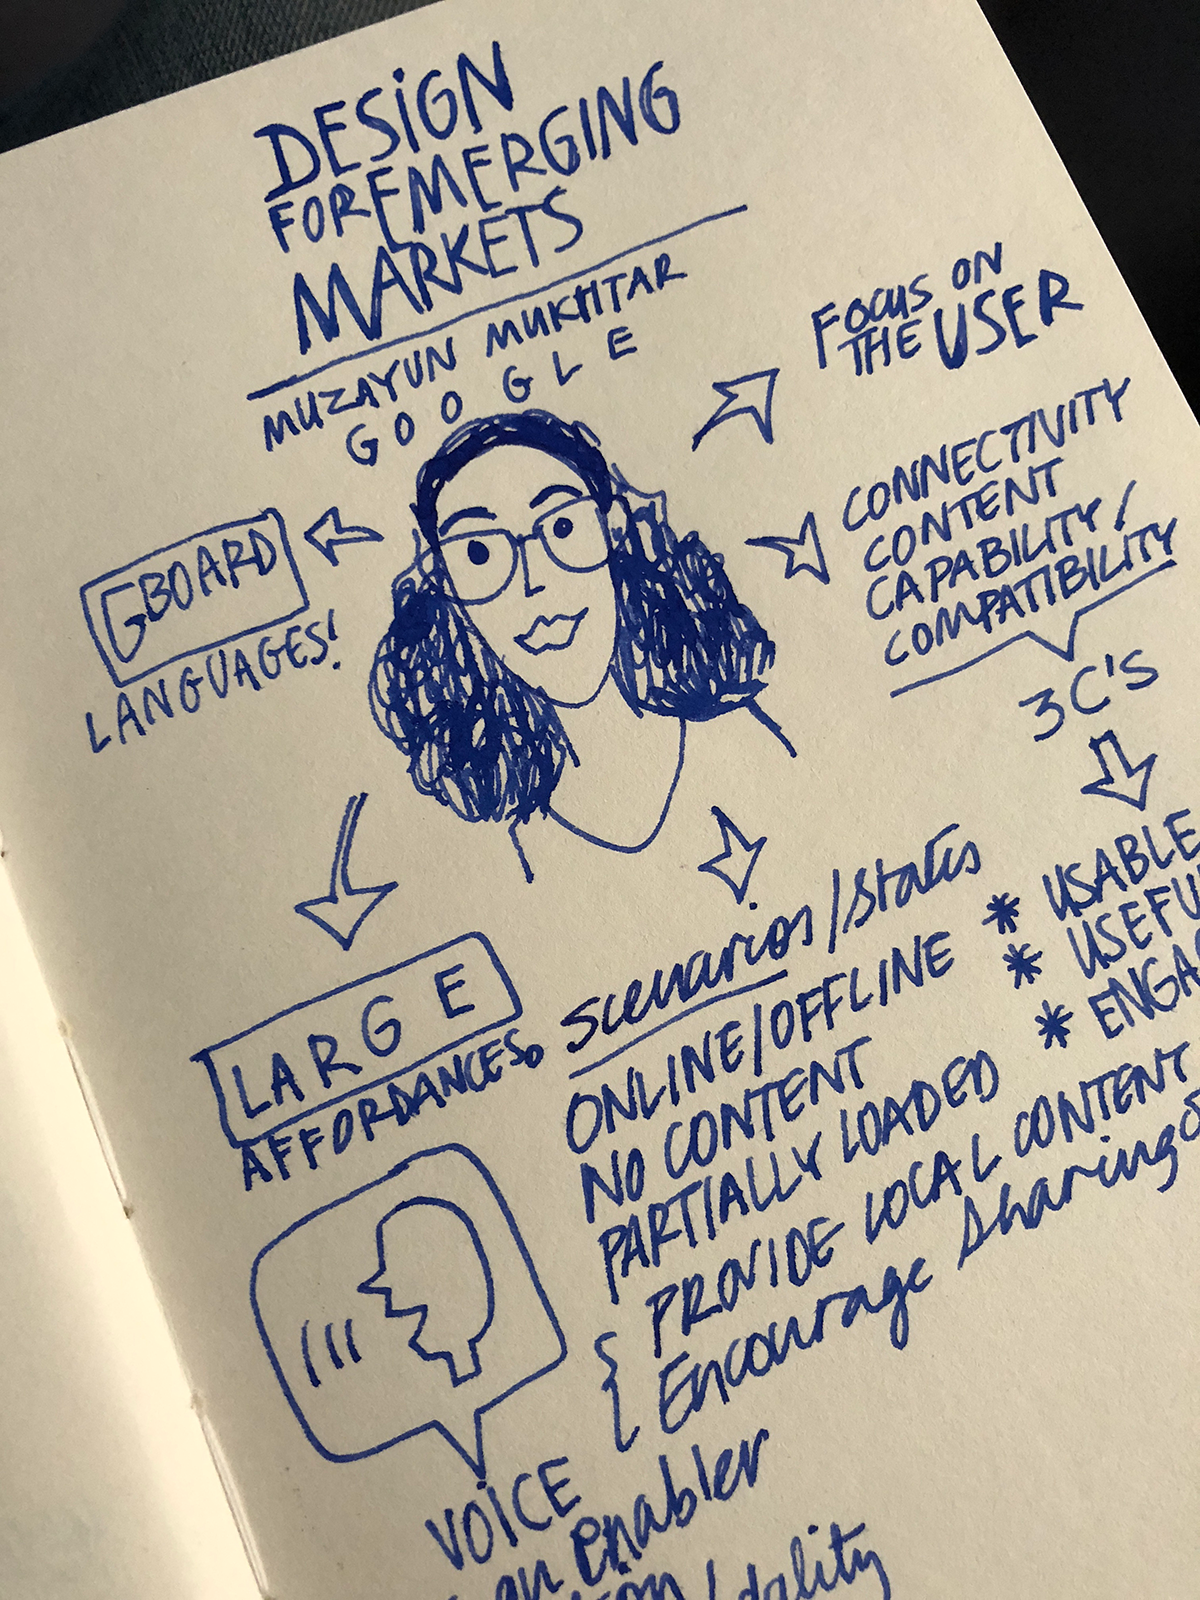 DESIGN
FOR EMERGING
MARKETS
MUZAYUN MUKHTAR
GOOGLE
FOCUS ON
THE USER
CONNECTIVITY
CONTENT
CAPABILITY/
COMPATIBILITY
3C'S
* USABLE
* USEFU
* ENGA
GBOARD
LANGUAGES!
LARGE
AFFORDANCES.
Scenarios/States
ONLINE/OFFLINE
NO CONTENT
PARTIALLY LOADED
PROVIDE LOCAL CONTENT
Encourage sharing
VOICE
an enabler